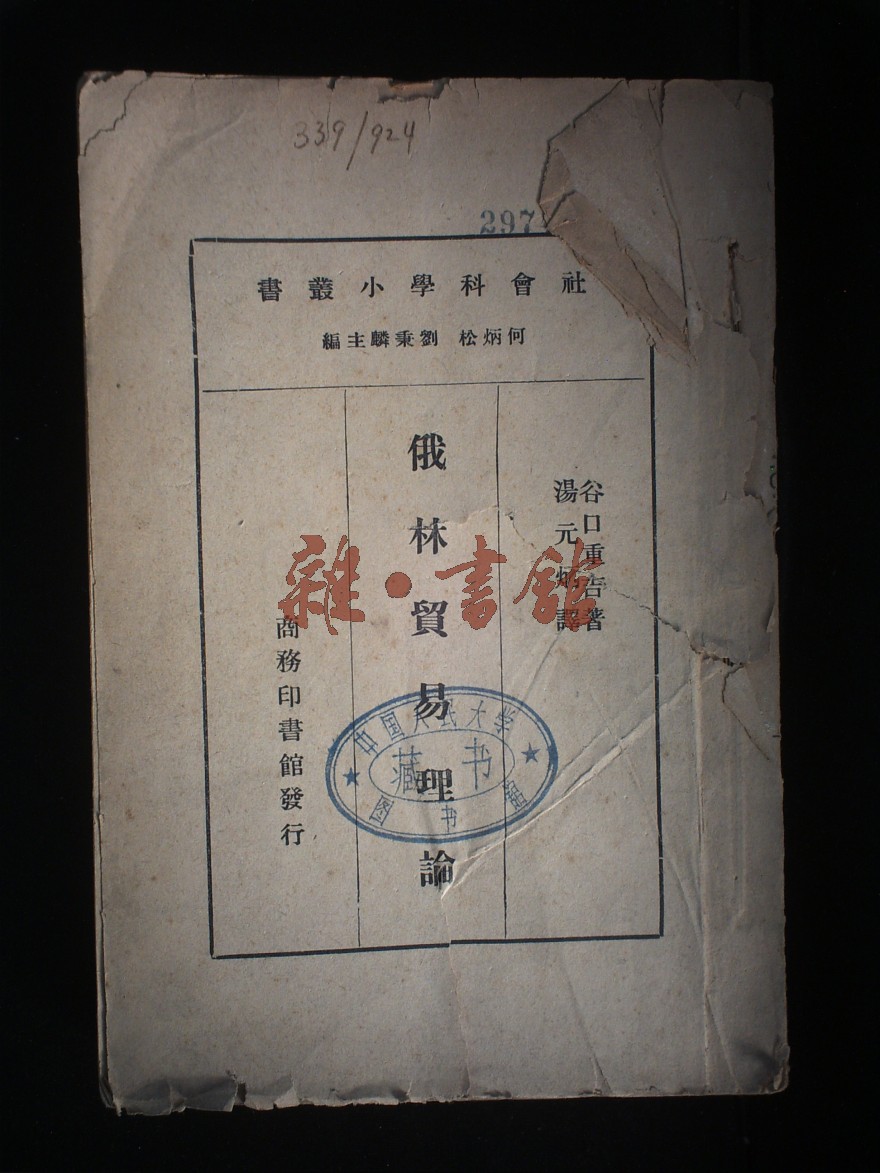 339/924
297
社會科學小叢書
何炳松 劉秉麟主編
谷口重吉著
湯元炳譯
俄林貿易理論
商務印書館發行
雜·書館
中国人民大学
藏书
图书馆